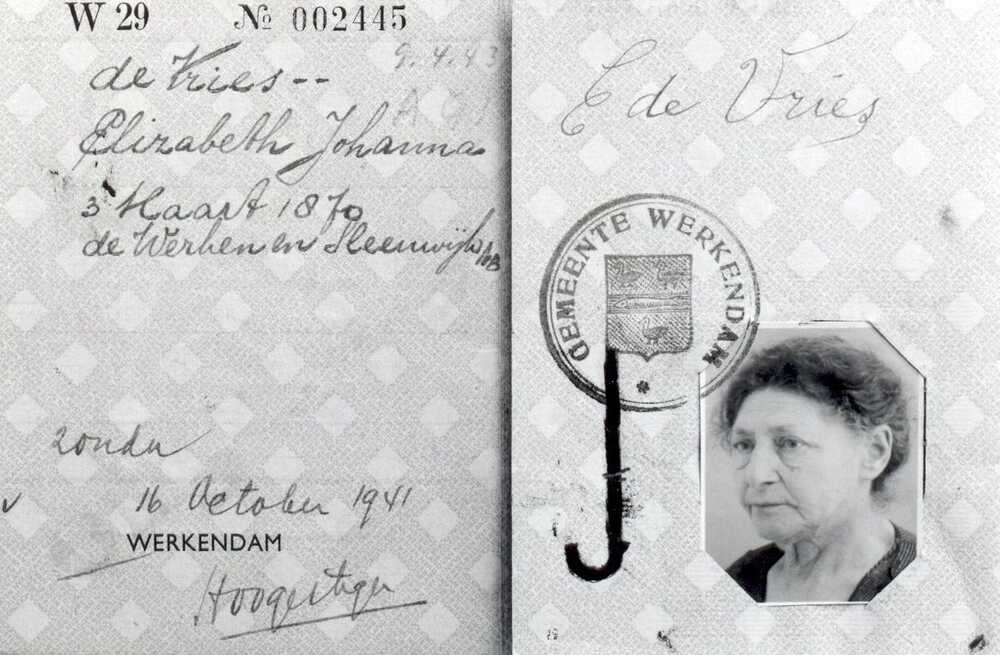 W 29 № 002445
9.4.43
de Vries--
Elizabeth Johanna
3 Maart 1870
de Werken en Sleeuwijk NB
zonder
16 October 1941
WERKENDAM
E de Vries
GEMEENTE WERKENDAM
J